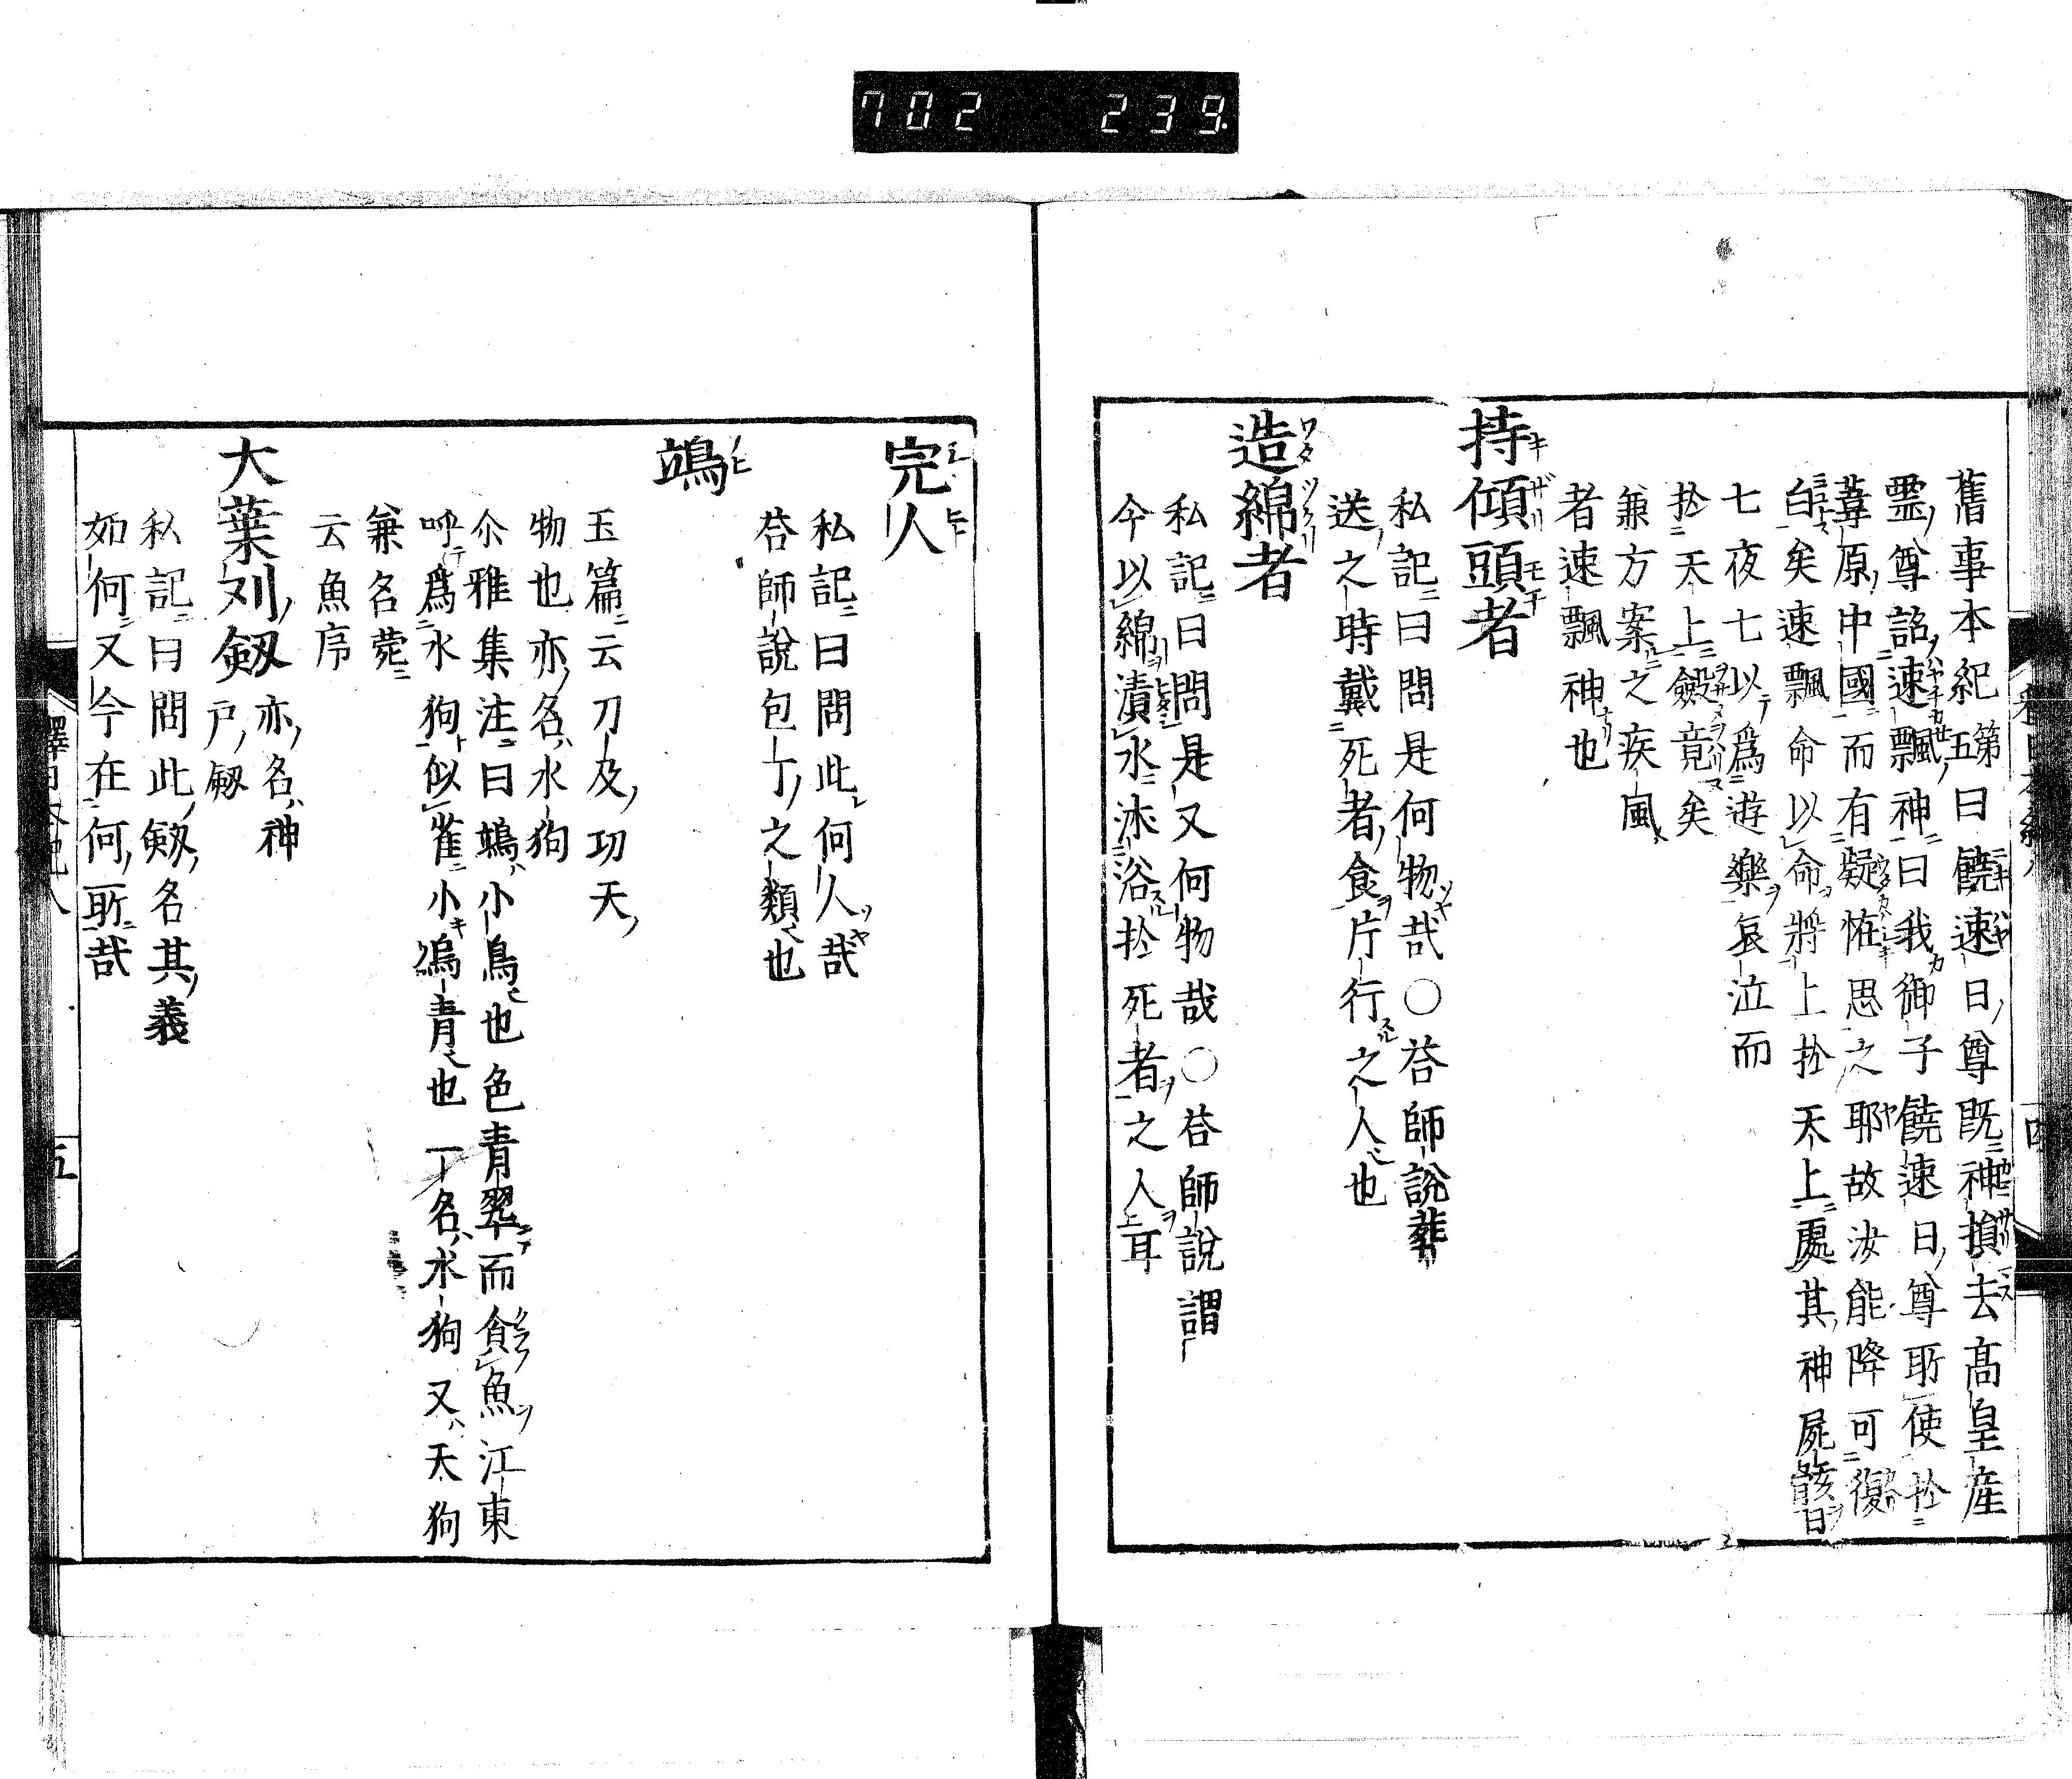 702 239
舊事本紀第五曰饒速日尊既神損去髙皇産
霊尊詔速飄神曰我御子饒速日尊所使於
葦原中國而有疑恠思之耶故汝能降可復
白矣速飄命以命將上於天上處其神屍骸日
七夜七以爲遊樂哀泣而
於天上斂竟矣
兼方案之疾風
者速飄神也
持傾頭者
私記曰問是何物哉○荅師説葬
送之時戴死者食片行之人也
造綿者
私記曰問是又何物哉○荅師説謂
今以綿漬水沐浴於死者之人耳
四
完人
私記曰問此何人哉
荅師説包丁之類也
鴗
玉篇云力及切天
物也亦名水狗
尒雅集注曰鴗小鳥也色青翠而食魚江東
呼爲水狗似雀小鳥青也一名水狗又天狗
兼名苑
云魚帍
大葉刈劔亦名神戸劔
私記曰問此劔名其義
如何又今在何所哉
釋日本紀八
五